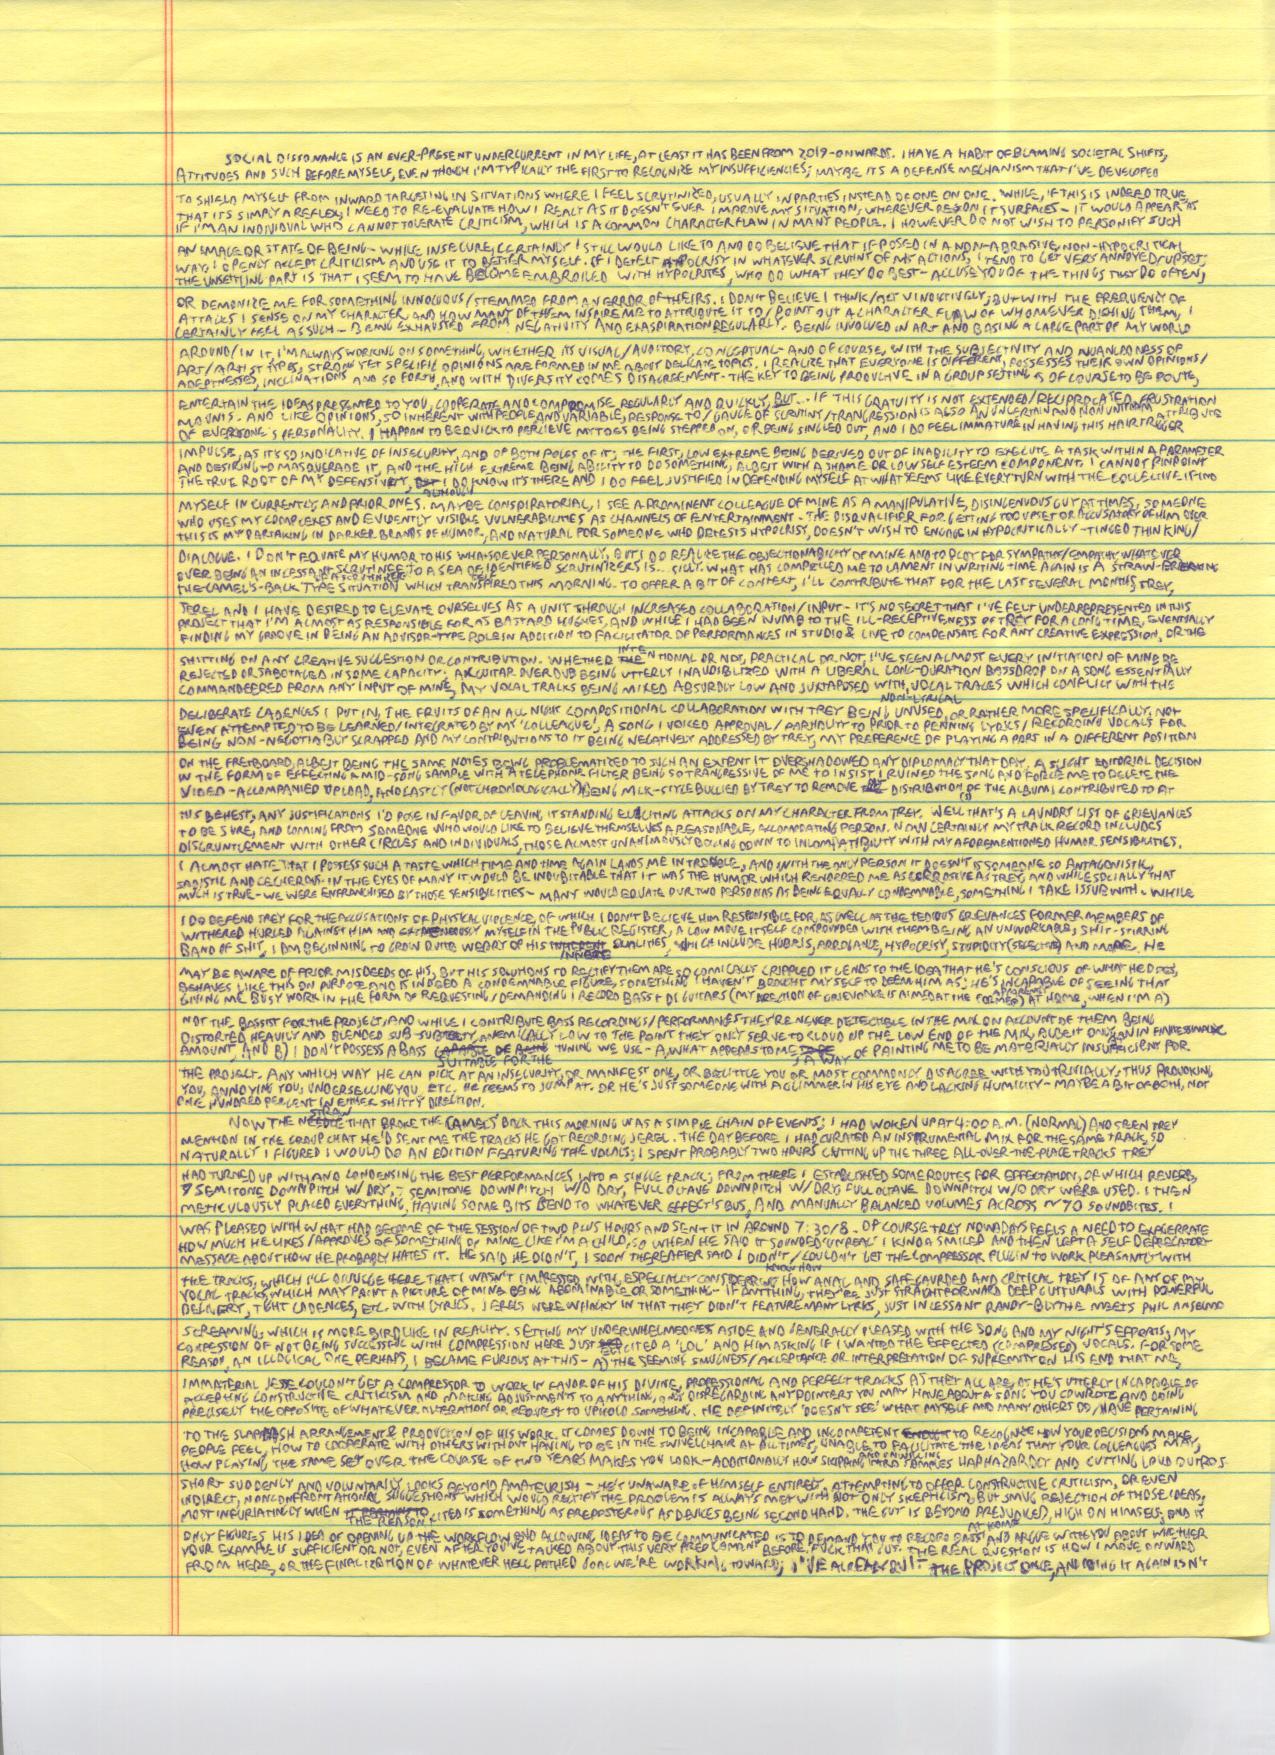 SOCIAL DISSONANCE IS AN EVER-PRESENT UNDERCURRENT IN MY LIFE, AT LEAST IT HAS BEEN FROM 2019-ONWARDS. I HAVE A HABIT OF BLAMING SOCIETAL SHIFTS,
ATTITUDES AND SUCH BEFORE MYSELF, EVEN THOUGH I'M TYPICALLY THE FIRST TO RECOGNIZE MY INSUFFICIENCIES; MAYBE ITS A DEFENSE MECHANISM THAT I'VE DEVELOPED
TO SHIELD MYSELF FROM INWARD TARGETING IN SITUATIONS WHERE I FEEL SCRUTINIZED, USUALLY IN PARTIES INSTEAD OF ONE ON ONE. WHILE, IF THIS IS INDEED TRUE,
THAT ITS SIMPLY A REFLEX, I NEED TO RE-EVALUATE HOW I REACT AS IT DOESN'T EVER IMPROVE MY SITUATION, WHEREVER REASON IT SURFACES - IT WOULD APPEAR AS
IF I'M AN INDIVIDUAL WHO CANNOT TOLERATE CRITICISM, WHICH IS A COMMON CHARACTER FLAW IN MANY PEOPLE. I HOWEVER DO NOT WISH TO PERSONIFY SUCH
AN IMAGE OR STATE OF BEING - WHILE INSECURE, CERTAINLY I STILL WOULD LIKE TO AND DO BELIEVE THAT IF POSED IN A NON-ABRASIVE, NON-HYPOCRITICAL
WAY, I OPENLY ACCEPT CRITICISM AND USE IT TO BETTER MYSELF. IF I DETECT HYPOCRISY IN WHATEVER SCRUTINY OF MY ACTIONS, I TEND TO GET VERY ANNOYED/UPSET;
THE UNSETTLING PART IS THAT I SEEM TO HAVE BECOME EMBROILED WITH HYPOCRITES, WHO DO WHAT THEY DO BEST - ACCUSE YOU OF THE THINGS THEY DO OFTEN,
OR DEMONIZE ME FOR SOMETHING INNOCUOUS/STEMMED FROM AN ERROR OF THEIRS. I DON'T BELIEVE I THINK/ACT VINDICTIVELY, BUT WITH THE FREQUENCY OF
ATTACKS I SENSE ON MY CHARACTER AND HOW MANY OF THEM INSPIRE ME TO ATTRIBUTE IT TO/POINT OUT A CHARACTER FLAW OF WHOMEVER DISHING THEM, I
CERTAINLY FEEL AS SUCH - BEING EXHAUSTED FROM NEGATIVITY AND EXASPIRATION REGULARLY. BEING INVOLVED IN ART AND BASING A LARGE PART OF MY WORLD
AROUND/IN IT I'M ALWAYS WORKING ON SOMETHING, WHETHER ITS VISUAL/AUDITORY, CONCEPTUAL - AND OF COURSE, WITH THE SUBJECTIVITY AND NUANCEDNESS OF
ART/ARTIST TYPES, STRONG YET SPECIFIC OPINIONS ARE FORMED IN ME ABOUT DELICATE TOPICS. I REALIZE THAT EVERYONE IS DIFFERENT, POSSESSES THEIR OWN OPINIONS/
ADEPTNESSES, INCLINATIONS AND SO FORTH, AND WITH DIVERSITY COMES DISAGREEMENT - THE KEY TO BEING PRODUCTIVE IN A GROUP SETTING IS OF COURSE TO BE POLITE,
ENTERTAIN THE IDEAS PRESENTED TO YOU, COOPERATE AND COMPROMISE REGULARLY AND QUICKLY, BUT... IF THIS GRATUITY IS NOT EXTENDED/RECIPROCATED, FRUSTRATION
MOUNTS. AND LIKE OPINIONS, SO INHERENT WITH PEOPLE AND VARIABLE, RESPONSE TO/GAUGE OF SCRUTINY/TRANGRESSION IS ALSO AN UNCERTAIN AND NON UNIFORM ATTRIBUTE
OF EVERYONE'S PERSONALITY. I HAPPEN TO BE QUICK TO PERCIEVE MY TOES BEING STEPPED ON, OR BEING SINGLED OUT, AND I DO FEEL IMMATURE IN HAVING THIS HAIR TRIGGER
IMPULSE, AS IT'S SO INDICATIVE OF INSECURITY, AND OF BOTH POLES OF IT; THE FIRST, LOW EXTREME BEING DERIVED OUT OF INABILITY TO EXECUTE A TASK WITHIN A PARAMETER
AND DESIRING TO MASQUERADE IT, AND THE HIGH EXTREME BEING ABILITY TO DO SOMETHING, ALBEIT WITH A SHAME OR LOW SELF ESTEEM COMPONENT. I CANNOT PINPOINT
THE TRUE ROOT OF MY DEFENSIVITY, ALTHOUGH I DO KNOW IT'S THERE AND I DO FEEL JUSTIFIED IN DEFENDING MYSELF AT WHAT SEEMS LIKE EVERY TURN WITH THE COLLECTIVE IF IND
MYSELF IN CURRENTLY, AND PRIOR ONES. MAYBE CONSPIRATORIAL, I SEE A PROMINENT COLLEAGUE OF MINE AS A MANIPULATIVE, DISINGENUOUS GUY AT TIMES, SOMEONE
WHO USES MY COMPLEXES AND EVIDENTLY VISIBLE VULNERABILITIES AS CHANNELS OF ENTERTAINMENT - THE DISQUALIFIER FOR GETTING TOO UPSET OR ACCUSATORY OF HIM OVER
THIS IS MY PARTAKING IN DARKER BRANDS OF HUMOR, AND NATURAL FOR SOMEONE WHO DETESTS HYPOCRISY, DOESN'T WISH TO ENGAGE IN HYPOCRITICALLY-TINGED THINKING/
DIALOGUE. I DON'T EQUATE MY HUMOR TO HIS WHATSOEVER PERSONALLY, BUT I DO REALIZE THE OBJECTIONABILITY OF MINE AND TO PLOT FOR SYMPATHY/EMPATHY WHATEVER
OVER BEING AN INCESSANT SCRUTINEE TO A SEA OF IDENTIFIED SCRUTINIZERS IS... SILLY. WHAT HAS COMPELLED ME TO LAMENT IN WRITING TIME AGAIN IS A STRAW-BREAKING
THE-CAMEL'S-BACK TYPE SITUATION WHICH TRANSPIRED THIS MORNING. TO OFFER A BIT OF CONTEXT, I'LL CONTRIBUTE THAT FOR THE LAST SEVERAL MONTHS, TREY,
JEREL AND I HAVE DESIRED TO ELEVATE OURSELVES AS A UNIT THROUGH INCREASED COLLABORATION/INPUT - IT'S NO SECRET THAT I'VE FELT UNDERREPRESENTED IN THIS
PROJECT THAT I'M ALMOST AS RESPONSIBLE FOR AS BASTARD HUGHES, AND WHILE I HAD BEEN NUMB TO THE ILL-RECEPTIVENESS OF TREY FOR A LONG TIME, EVENTUALLY
FINDING MY GROOVE IN BEING AN ADVISOR-TYPE ROLE IN ADDITION TO FACILITATOR OF PERFORMANCES IN STUDIO & LIVE TO COMPENSATE FOR ANY CREATIVE EXPRESSION, OR THE
SHITTING ON ANY CREATIVE SUGGESTION OR CONTRIBUTION. WHETHER INTENTIONAL OR NOT, PRACTICAL OR NOT, I'VE SEEN ALMOST EVERY INITIATION OF MINE BE
REJECTED OR SABOTAGED IN SOME CAPACITY: A GUITAR OVERDUB BEING UTTERLY INAUDIBLIZED WITH A LIBERAL LONG-DURATION BASSDROP ON A SONG ESSENTIALLY
COMMANDEERED FROM ANY INPUT OF MINE, MY VOCAL TRACKS BEING MIXED ABSURDLY LOW AND JUXTAPOSED WITH NON-LYRICAL VOCAL TRACES WHICH CONFLICT WITH THE
DELIBERATE CADENCES I PUT IN, THE FRUITS OF AN ALL NIGHT COMPOSITIONAL COLLABORATION WITH TREY BEING UNUSED, OR RATHER MORE SPECIFICALLY, NOT
EVEN ATTEMPTED TO BE LEARNED/INTEGRATED BY MY 'COLLEAGUE', A SONG I VOICED APPROVAL/ TO PRIOR TO PENNING LYRICS/RECORDING VOCALS FOR
BEING NON-NEGOTIABLY SCRAPPED AND MY CONTRIBUTIONS TO IT BEING NEGATIVELY ADDRESSED BY TREY, MY PREFERENCE OF PLAYING A PART IN A DIFFERENT POSITION
ON THE FRETBOARD, ALBEIT BEING THE SAME NOTES BEING PROBLEMATIZED TO SUCH AN EXTENT IT OVERSHADOWED ANY DIPLOMACY THAT DAY. A SLIGHT EDITORIAL DECISION
IN THE FORM OF EFFECTING A MID-SONG SAMPLE WITH A TELEPHONE FILTER BEING SO TRANGRESSIVE OF ME TO INSIST I RUINED THE SONG AND FORCE ME TO DELETE THE
VIDEO-ACCOMPANIED UPLOAD, AND LASTLY (NOT CHRONOLOGICALLY) BEING MLK-STYLE BULLIED BY TREY TO REMOVE MY DISTRIBUTION(S) OF THE ALBUM I CONTRIBUTED TO AT
HIS BEHEST, ANY JUSTIFICATIONS I'D POSE IN FAVOR OF LEAVING IT STANDING ELICITING ATTACKS ON MY CHARACTER FROM TREY. WELL THAT'S A LAUNDRY LIST OF GRIEVANCES
TO BE SURE, AND COMING FROM SOMEONE WHO WOULD LIKE TO BELIEVE THEMSELVES A REASONABLE, ACCOMODATING PERSON. NOW CERTAINLY MY TRACK RECORD INCLUDES
DISGRUNTLEMENT WITH OTHER CIRCLES AND INDIVIDUALS, THOSE ALMOST UNANIMOUSLY BOILING DOWN TO INCOMPATIBILITY WITH MY AFOREMENTIONED HUMOR SENSIBILITIES.
I ALMOST HATE THAT I POSSESS SUCH A TASTE WHICH TIME AND TIME AGAIN LANDS ME IN TROUBLE, AND WITH THE ONLY PERSON IT DOESN'T IS SOMEONE SO ANTAGONISTIC,
SADISTIC AND LECHEROUS. IN THE EYES OF MANY IT WOULD BE INDUBITABLE THAT IT WAS THE HUMOR WHICH RENDERED ME AS CORROSIVE AS TREY, AND WHILE SOCIALLY THAT
MUCH IS TRUE - WE WERE ENFRANCHISED BY THOSE SENSIBILITIES - MANY WOULD EQUATE OUR TWO PERSONAS AS BEING EQUALLY CONDEMNABLE, SOMETHING I TAKE ISSUE WITH. WHILE
I DO DEFEND TREY FOR THE ACCUSATIONS OF PHYSICAL VIOLENCE, OF WHICH I DON'T BELIEVE HIM RESPONSIBLE FOR, AS WELL AS THE TEDIOUS GRIEVANCES FORMER MEMBERS OF
WITHERED HURLED AGAINST HIM AND EXTRENEOUSLY MYSELF IN THE PUBLIC REGISTER, A LOW MOVE ITSELF COMPOUNDED WITH THEM BEING AN UNWORKABLE, SHIT-STIRRING
BAND OF SHIT, I AM BEGINNING TO GROW QUITE WEARY OF HIS INNATE QUALITIES, WHICH INCLUDE HUBRIS, ARROGANCE, HYPOCRISY, STUPIDITY (SELECTIVE) AND MORE. HE
MAY BE AWARE OF PRIOR MISDEEDS OF HIS, BUT HIS SOLUTIONS TO RECTIFY THEM ARE SO COMICALLY CRIPPLED IT LENDS TO THE IDEA THAT HE'S CONSCIOUS OF WHAT HE DOES,
BEHAVES LIKE THIS ON PURPOSE AND IS INDEED A CONDEMNABLE FIGURE, SOMETHING I HAVEN'T BROUGHT MYSELF TO DEEM HIM AS; HE'S INCAPABLE OF SEEING THAT
GIVING ME BUSY WORK IN THE FORM OF REQUESTING/DEMANDING I RECORD BASS + DI GUITARS (MY DIRECTION OF GRIEVANCE IS AIMED AT THE APPARENT FORMER) AT HOME, WHEN I'M A)
NOT THE BASSIST FOR THE PROJECT, AND WHILE I CONTRIBUTE BASS RECORDINGS/PERFORMANCES THEY'RE NEVER DETECTABLE IN THE MIX ON ACCOUNT OF THEM BEING
DISTORTED HEAVILY AND BLENDED SUB-SUBTLETY, ANEMICALLY LOW TO THE POINT THEY ONLY SERVE TO CLOUD UP THE LOW END OF THE MIX, ALBEIT ONLY IN AN INFINITESIMAL
AMOUNT, AND B) I DON'T POSSESS A BASS SUITABLE FOR THE TUNING WE USE - A, WHAT APPEARS TO ME A WAY OF PAINTING ME TO BE MATERIALLY INSUFFICIENT FOR
THE PROJECT. ANY WHICH WAY HE CAN PICK AT AN INSECURITY, OR MANIFEST ONE, OR BELITTLE YOU OR MOST COMMONLY DISAGREE WITH YOU TRIVIALLY, THUS PROVOKING
YOU, ANNOYING YOU, UNDERSELLING YOU, ETC. HE SEEMS TO JUMP AT. OR HE'S JUST SOMEONE WITH A GLIMMER IN HIS EYE AND LACKING HUMILITY - MAYBE A BIT OF BOTH, NOT
ONE HUNDRED PERCENT IN EITHER SHITTY DIRECTION.
NOW THE STRAW THAT BROKE THE CAMELS' BACK THIS MORNING WAS A SIMPLE CHAIN OF EVENTS; I HAD WOKEN UP AT 4:00 A.M. (NORMAL) AND SEEN TREY
MENTION IN THE GROUP CHAT HE'D SENT ME THE TRACKS HE GOT RECORDING JEREL. THE DAY BEFORE I HAD CURATED AN INSTRUMENTAL MIX FOR THE SAME TRACK, SO
NATURALLY I FIGURED I WOULD DO AN EDITION FEATURING THE VOCALS; I SPENT PROBABLY TWO HOURS CUTTING UP THE THREE ALL-OVER-THE-PLACE TRACKS TREY
HAD TURNED UP WITH AND CONDENSING THE BEST PERFORMANCES INTO A SINGLE TRACK; FROM THERE I ESTABLISHED SOME ROUTES FOR EFFECTATION, OF WHICH REVERB,
7 SEMITONE DOWNPITCH W/ DRY, - SEMITONE DOWNPITCH W/O DRY, FULL OCTAVE DOWNPITCH W/ DRY, FULL OCTAVE DOWNPITCH W/O DRY WERE USED. I THEN
METICULOUSLY PLACED EVERYTHING, HAVING SOME BITS SEND TO WHATEVER EFFECT'S BUS, AND MANUALLY BALANCED VOLUMES ACROSS ~70 SOUNDBITES. I
WAS PLEASED WITH WHAT HAD BECOME OF THE SESSION OF TWO PLUS HOURS AND SENT IT IN AROUND 7:30/8. OF COURSE TREY NOWADAYS FEELS A NEED TO EXAGERRATE
HOW MUCH HE LIKES/APPROVES OF SOMETHING OF MINE LIKE I'M A CHILD, SO WHEN HE SAID IT SOUNDED 'UNREAL' I KINDA SMILED AND THEN LEFT A SELF DEPRECATORY
MESSAGE ABOUT HOW HE PROBABLY HATES IT. HE SAID HE DIDN'T, I SOON THEREAFTER SAID I DIDN'T KNOW HOW/COULDN'T GET THE COMPRESSOR PLUGIN TO WORK PLEASANTLY WITH
THE TRACKS, WHICH I'LL DIVULGE HERE THAT I WASN'T IMPRESSED WITH, ESPECIALLY CONSIDERING HOW ANAL AND SAFEGAURDED AND CRITICAL TREY IS OF ANY OF MY
VOCAL TRACKS, WHICH MAY PAINT A PICTURE OF MINE BEING ABOMINABLE OR SOMETHING - IF ANYTHING, THEY'RE JUST STRAIGHTFORWARD DEEP GUTTURALS WITH POWERFUL
DELIVERY, TIGHT CADENCES, ETC. WITH LYRICS. JERELS WERE WHACKY IN THAT THEY DIDN'T FEATURE MANY LYRICS, JUST INCESSANT RANDY-BLYTHE MEETS PHIL ANSELMO
SCREAMING, WHICH IS MORE BIRDLIKE IN REALITY. SETTING MY UNDERWHELMEDNESS ASIDE AND GENERALLY PLEASED WITH THE SONG AND MY NIGHT'S EFFORTS, MY
CONFESSION OF NOT BEING SUCCESSFUL WITH COMPRESSION HERE JUST ELICITED A 'LOL' AND HIM ASKING IF I WANTED THE EFFECTED (COMPRESSED) VOCALS. FOR SOME
REASON, AN ILLOGICAL ONE PERHAPS, I BECAME FURIOUS AT THIS - A) THE SEEMING SMUGNESS/ACCEPTANCE OR INTERPRETATION OF SUPREMITY ON HIS END THAT ME,
IMMATERIAL JESSE COULDN'T GET A COMPRESSOR TO WORK IN FAVOR OF HIS DIVINE, PROFESSIONAL AND PERFECT TRACKS AS THEY ALL ARE, AS HE'S UTTERLY INCAPABLE OF
ACCEPTING CONSTRUCTIVE CRITICISM AND MAKING ADJUSTMENTS TO ANYTHING, DISREGARDING ANY POINTERS YOU MAY HAVE ABOUT A SONG YOU COWROTE AND DOING
PRECISELY THE OPPOSITE OF WHATEVER ALTERATION OR REQUEST TO UPHOLD SOMETHING. HE DEFINITELY 'DOESN'T SEE' WHAT MYSELF AND MANY OTHERS DO/HAVE PERTAINING
TO THE SLAPDASH ARRANGEMENT & PRODUCTION OF HIS WORK. IT COMES DOWN TO BEING INCAPABLE AND INCOMPETENT TO RECOGNIZE HOW YOUR DECISIONS MAKE
PEOPLE FEEL, HOW TO COOPERATE WITH OTHERS WITHOUT HAVING TO BE IN THE SWIVEL CHAIR AT ALL TIMES, UNABLE AND UNWILLING TO FACILITATE THE IDEAS THAT YOUR COLLEAGUES MAY,
HOW PLAYING THE SAME SET OVER THE COURSE OF TWO YEARS MAKES YOU LOOK - ADDITIONALLY HOW SKIPPING INTRO SAMPLES HAPHAZARDLY AND CUTTING LOUD OUTROS
SHORT SUDDENLY AND VOLUNTARILY LOOKS BEYOND AMATEURISH - HE'S UNAWARE OF HIMSELF ENTIRELY. ATTEMPTING TO OFFER CONSTRUCTIVE CRITICISM, OR EVEN
INDIRECT, NONCONFRONTATIONAL SUGGESTIONS WHICH WOULD RECTIFY THE PROBLEM IS ALWAYS MET WITH NOT ONLY SKEPTICISM, BUT SMUG REJECTION OF THOSE IDEAS;
MOST INFURIATINGLY WHEN THE REASON CITED IS SOMETHING AS PREPOSTEROUS AS DEVICES BEING SECOND HAND. THE GUY IS BEYOND PREJUDICED, HIGH ON HIMSELF, AND IT
ONLY FIGURES HIS IDEA OF OPENING UP THE WORKFLOW AND ALLOWING IDEAS TO BE COMMUNICATED IS TO DEMAND YOU TO RECORD BASS AT HOME AND ARGUE WITH YOU ABOUT WHETHER
YOUR EXAMPLE IS SUFFICIENT OR NOT, EVEN AFTER YOU'VE TALKED ABOUT THIS VERY PREDICAMENT BEFORE. FUCK THAT GUY. THE REAL QUESTION IS HOW I MOVE ONWARD
FROM HERE, OR THE FINALIZATION OF WHATEVER HELL PATHED GOAL WE'RE WORKING TOWARD; I'VE ALREADY QUIT THE PROJECT ONCE, AND DOING IT AGAIN ISN'T